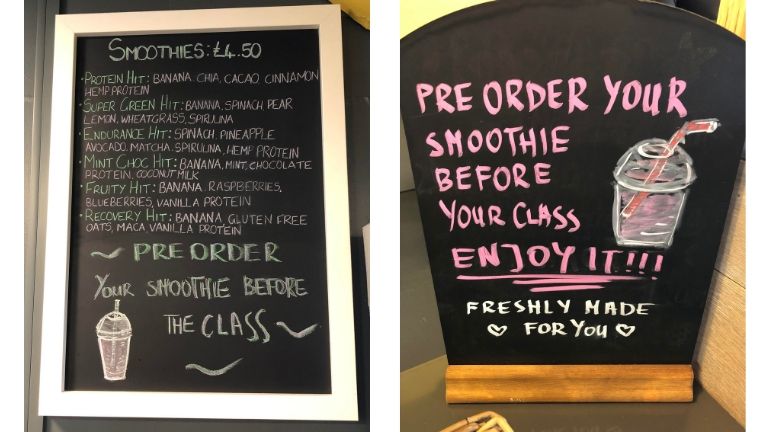 SMOOTHIES: £4.50
• PROTEIN HIT: BANANA, CHIA, CACAO, CINNAMON
HEMP PROTEIN
• SUPER GREEN HIT: BANANA, SPINACH, PEAR
LEMON, WHEATGRASS, SPIRULINA
• ENDURANCE HIT: SPINACH, PINEAPPLE
AVOCADO, MATCHA, SPIRULINA, HEMP PROTEIN
• MINT CHOC HIT: BANANA, MINT, CHOCOLATE
PROTEIN, COCONUT MILK
• FRUITY HIT: BANANA, RASPBERRIES,
BLUEBERRIES, VANILLA PROTEIN
• RECOVERY HIT: BANANA, GLUTEN FREE
OATS, MACA, VANILLA PROTEIN
PRE ORDER
YOUR SMOOTHIE BEFORE
THE CLASS
PRE ORDER YOUR
SMOOTHIE
BEFORE
YOUR CLASS
ENJOY IT!!!
FRESHLY MADE
♡ FOR YOU ♡